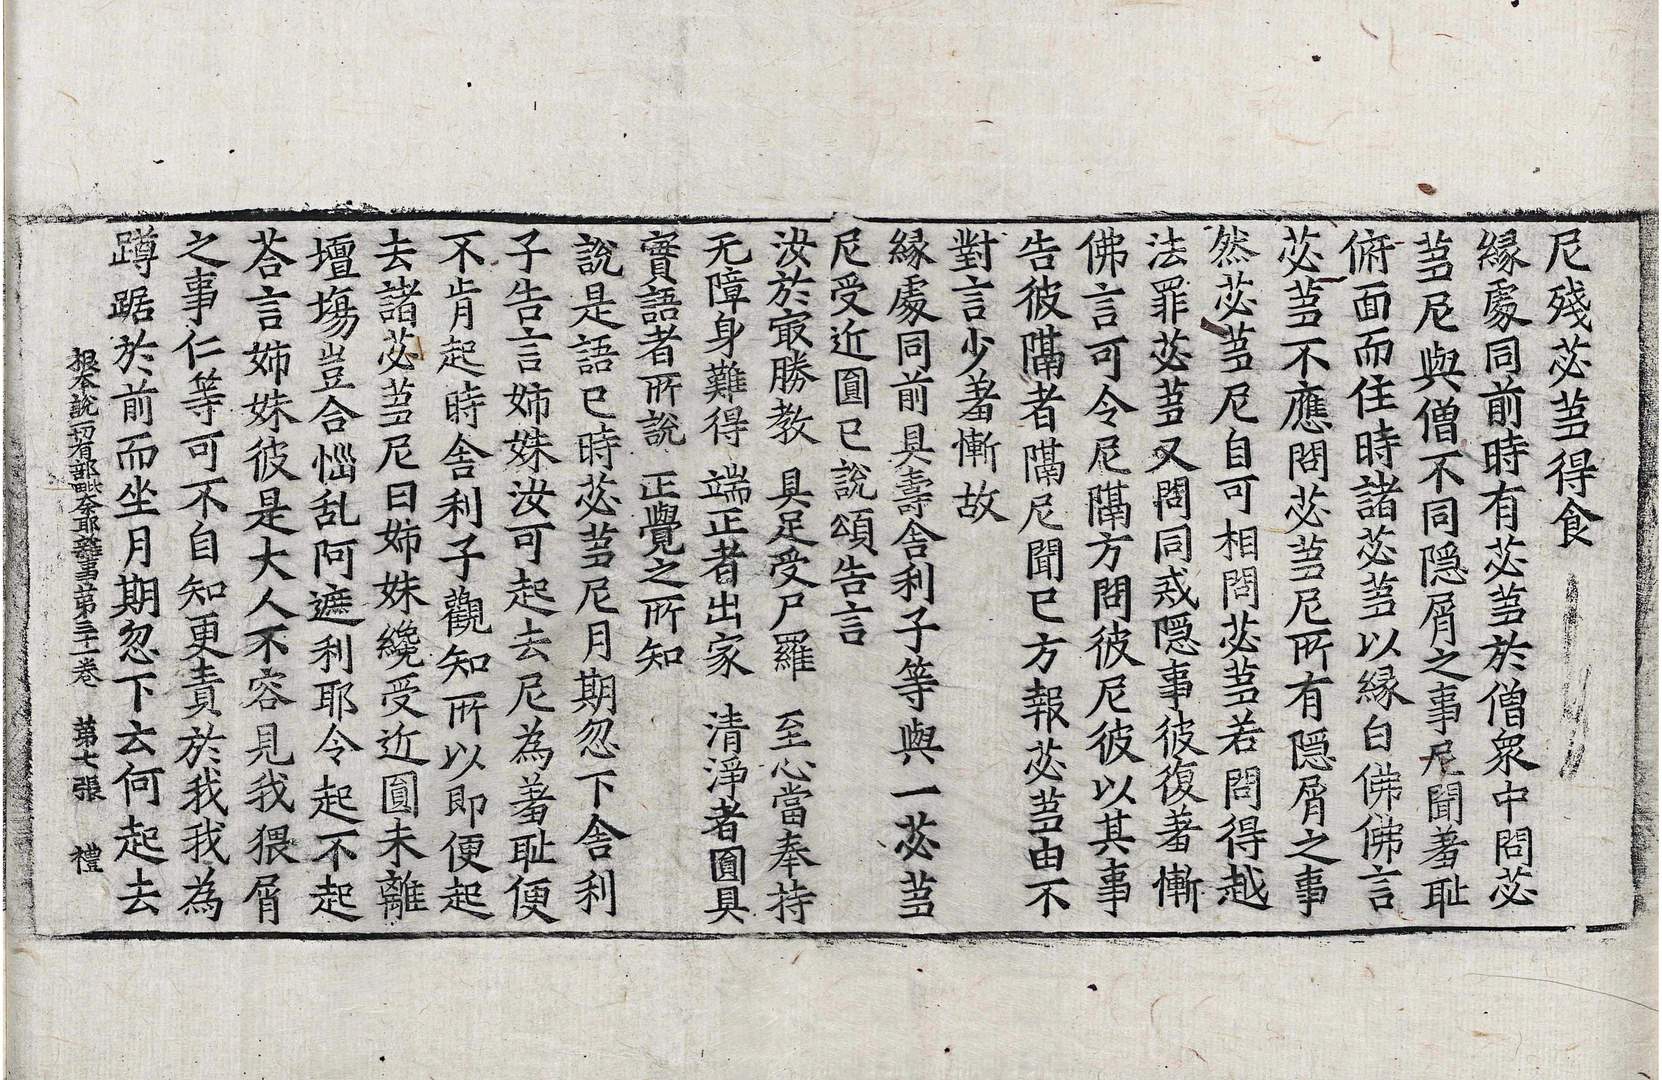 尼殘苾蒭得食
緣處同前時有苾蒭於僧衆中問苾
蒭尼與僧不同隱屑之事尼聞羞耻
俯面而住時諸苾蒭以緣白佛佛言
苾蒭不應問苾蒭尼所有隱屑之事
然苾蒭尼自可相問苾蒭若問得越
法罪苾蒭又問同戒隱事彼復著慚
佛言可令尼隔方問彼尼彼以其事
告彼隔者隔尼聞已方報苾蒭由不
對言少羞慚故
緣處同前具壽舍利子等與一苾蒭
尼受近圓已說頌告言
汝於㝡勝教　具足受尸羅　至心當奉持
无障身難得　端正者出家　清淨者圓具
實語者所說　正覺之所知
說是語已時苾蒭尼月期忽下舍利
子告言姊妹汝可起去尼為羞耻便
不肯起時舍利子觀知所以即便起
去諸苾蒭尼曰姊妹纔受近圓未離
壇場豈合惱乱阿遮利耶令起不起
荅言姊妹彼是大人不容見我猥屑
之事仁等可不自知更責於我我為
蹲踞於前而坐月期忽下云何起去
根本說一切有部毗奈耶雜事第三十一卷　第七張　禮